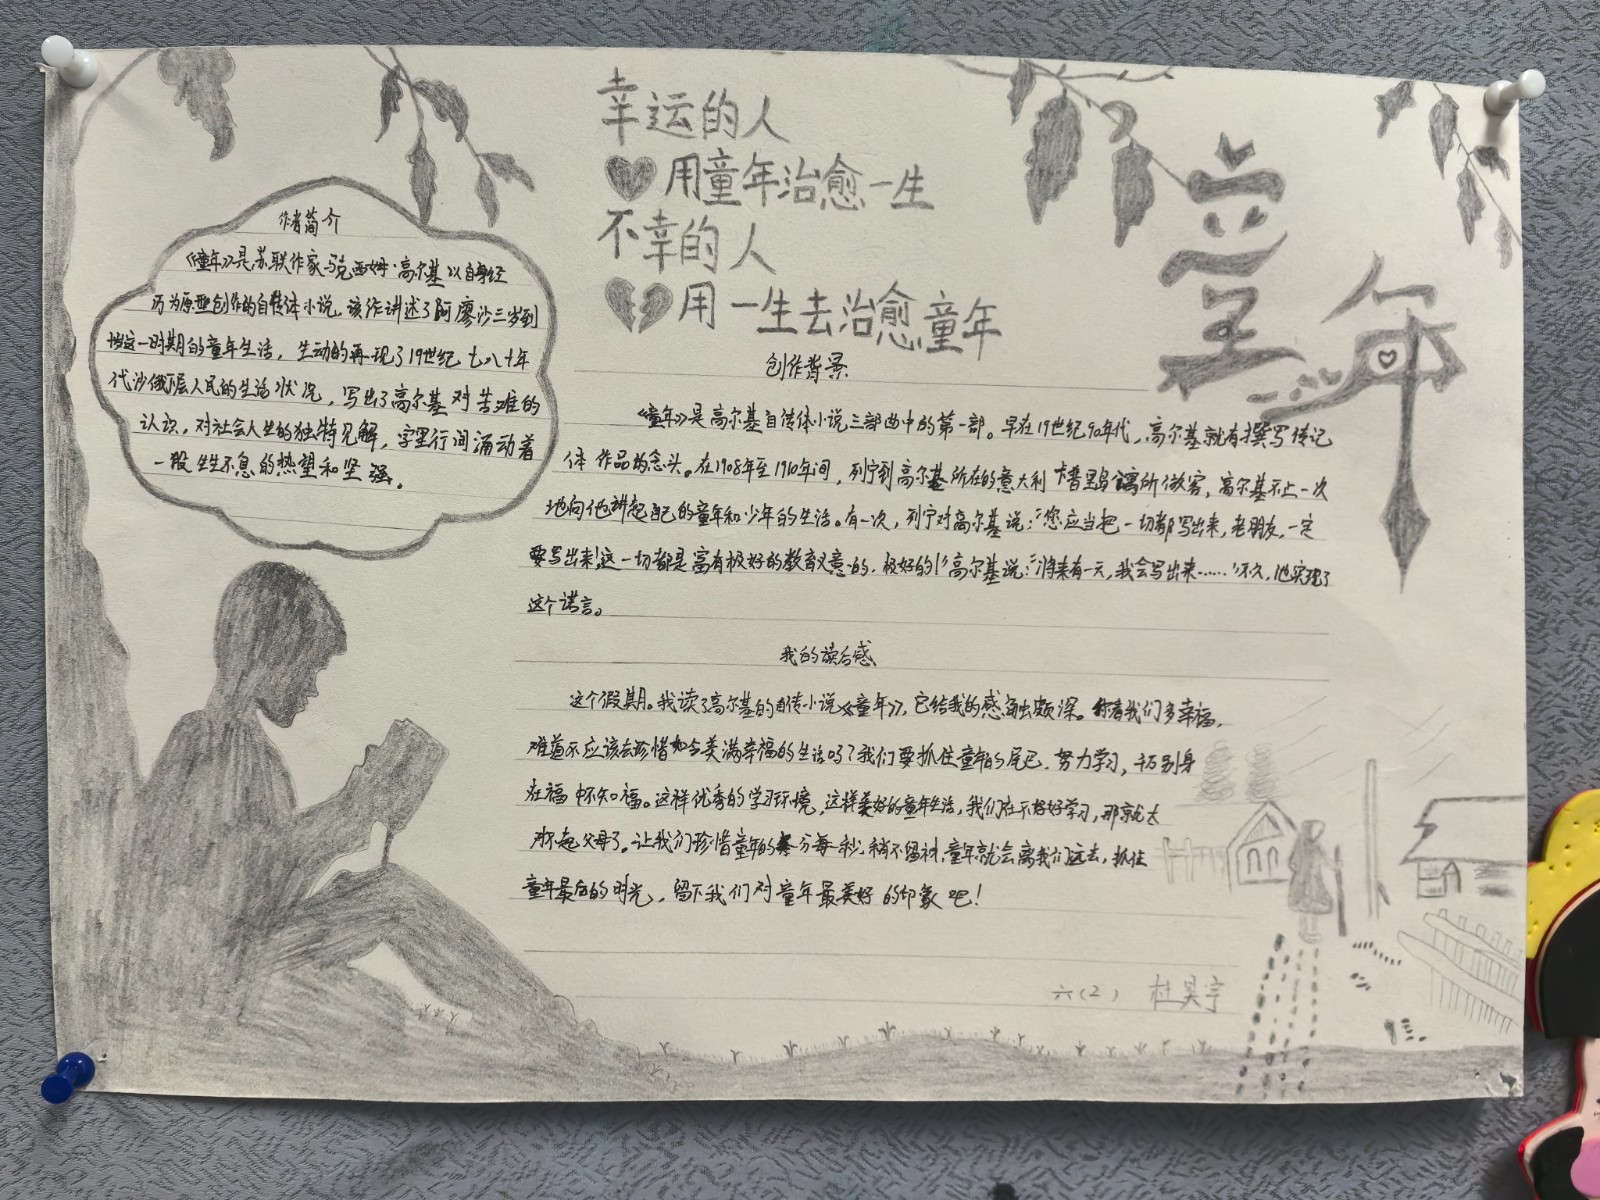 幸运的人
用童年治愈一生
不幸的人
用一生去治愈童年
童年
作者简介
《童年》是苏联作家马克西姆·高尔基以自身经
历为原型创作的自传体小说。该作讲述了阿廖沙三岁到
这一时期的童年生活，生动的再现了19世纪七八十年
代沙俄层人民的生活状况，写出了高尔基对苦难的
认识，对社会人生的独特见解，字里行间涌动着
一股生生不息的热望和坚强。
创作背景
《童年》是高尔基自传体小说三部曲中的第一部。早在19世纪90年代，高尔基就有撰写传记
体作品的念头。在1908年至1910年间，列宁到高尔基所在的意大利卡普里岛寓所做客，高尔基不止一次
地向他讲起自己的童年和少年的生活。有一次，列宁对高尔基说：“您应当把一切都写出来，老朋友，一定
要写出来！这一切都是富有极好的教育义意的，极好的！”高尔基说：“将来有一天，我会写出来……”不久，他实现了
这个诺言。
我的读后感
这个假期。我读了高尔基的自传小说《童年》，它给我的感触颇深。看着我们多幸福，
难道不应该去珍惜如今美满幸福的生活吗？我们要抓住童年的尾巴，努力学习，千万别身
在福中不知福。这样优秀的学习环境，这样美好的童年生活，我们在不好好学习，那就太
对不起父母了。让我们珍惜童年的每分每秒，稍不留神，童年就会离我们远去，抓住
童年最后的时光，留下我们对童年最美好的印象吧！
六（2） 杜昊宇